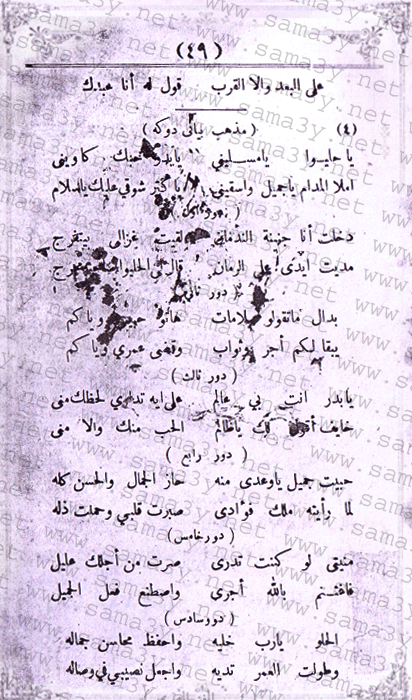 (٤٩)
على البعد والا القرب قول له أنا عبدك
(٤) (مذهب بياتى دوكه)
يا حليوا يامسلينى ياللى كاوينى
املا المدام ياجميل واسقينى يا كتر شوقي عليك يالدلام
(دور
دخلت أنا جهينة الندمان لقيت غزالى بيتفرج
مديت ايدى على الرمان قاللى الحليوه
(دور ثانى)
بدال ماتقولو سلامات هاتو وياكم
يبقا لكم أجر وثواب وقضى عمري وياكم
(دور ثالث)
يابدر انت بي عالم على ايه تداري لحظك منى
خايف أقول لك ياظالم الحب منك والا منى
(دور رابع)
حبيت جميل ياوعدى منه حاز الجمال والحسن كله
لما رأيته ملك فؤادى صبرت قلبي وحملت ذله
(دور خامس)
منيتى لو كنت تدرى صرت من أجلك عليل
فاغتنم بالله أجرى واصطنع فعل الجميل
(دور سادس)
الحلو يارب خليه واحفظ محاسن جماله
وطولت العمر تديه واجعل نصيبي في وصاله
www.sama3y.net